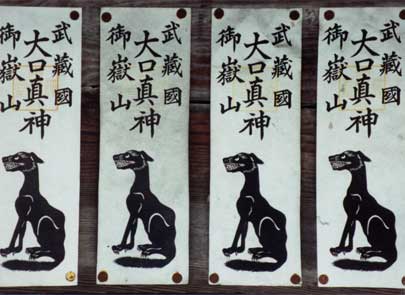 武藏國
大口真神
御嶽山
武藏國
大口真神
御嶽山
武藏國
大口真神
御嶽山
武藏國
大口真神
御嶽山